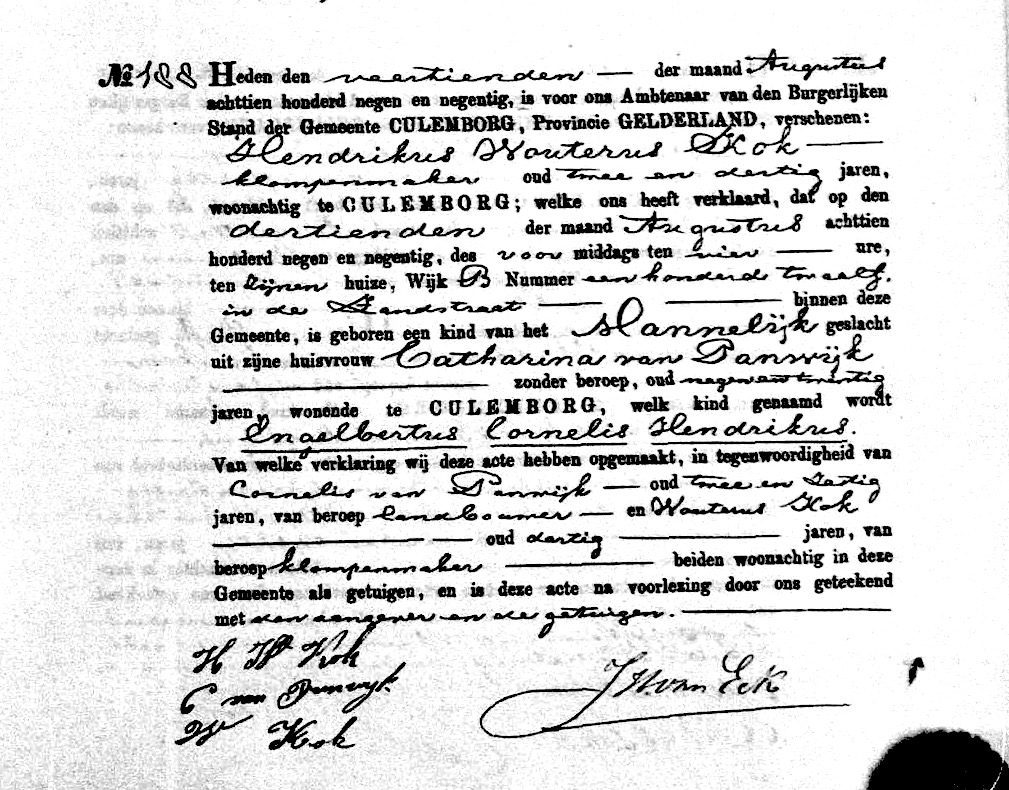 No 188 Heden den veertienden — der maand Augustus
achttien honderd negen en negentig, is voor ons Ambtenaar van den Burgerlijken
Stand der Gemeente CULEMBORG, Provincie GELDERLAND, verschenen:
Hendrikus Wouterus Kok —
klompenmaker oud twee en dertig jaren,
woonachtig te CULEMBORG; welke ons heeft verklaard, dat op den
dertienden der maand Augustus achttien
honderd negen en negentig, des voor middags ten vier — ure,
ten zijnen huize, Wijk B Nummer een honderd twaalf,
in de Zandstraat — — binnen deze
Gemeente, is geboren een kind van het Mannelijk geslacht
uit zijne huisvrouw Catharina van Panwijk
— zonder beroep, oud negenentwintig
jaren, wonende te CULEMBORG, welk kind genaamd wordt
Engelbertus Cornelis Hendrikus.
Van welke verklaring wij deze acte hebben opgemaakt, in tegenwoordigheid van
Cornelis van Panwijk — oud twee en zestig
jaren, van beroep landbouwer — en Wouterus Kok
— oud dertig — jaren, van
beroep klompenmaker — beiden woonachtig in deze
Gemeente als getuigen, en is deze acte na voorlezing door ons geteekend
met den aangever en de getuigen. —
H W Kok
C van Panwijk
W Kok
J H van Eck